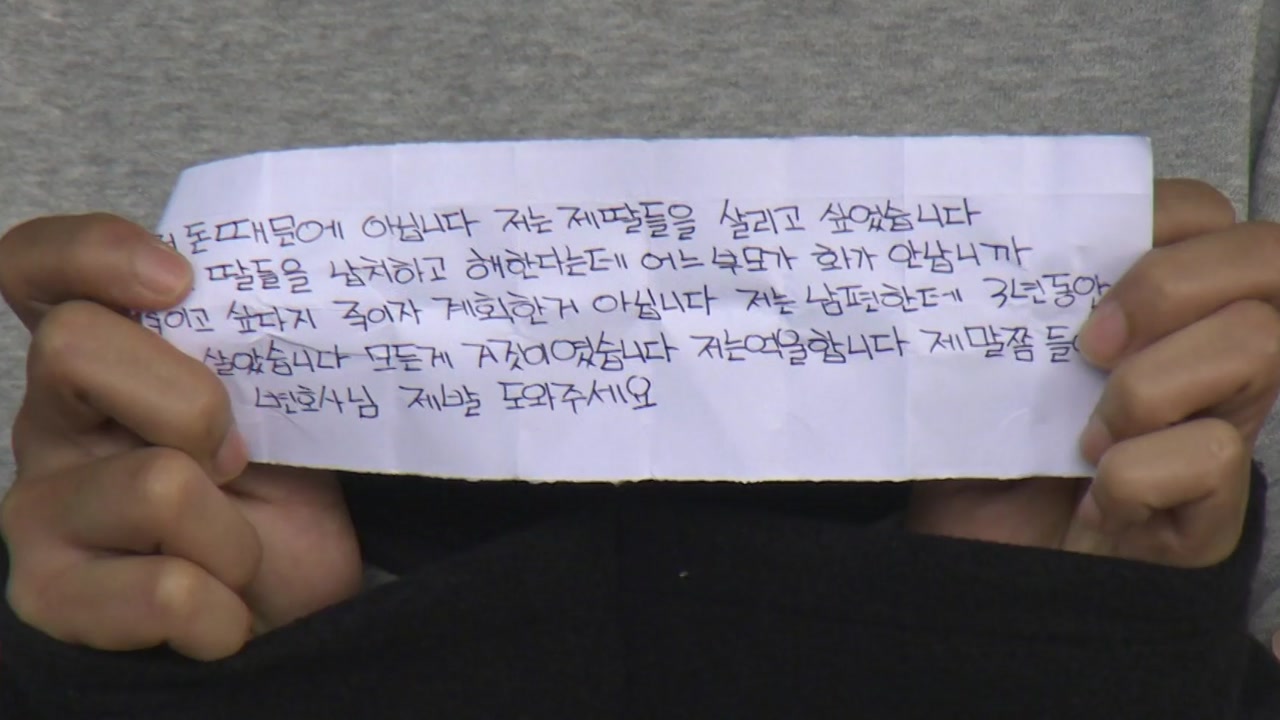 돈때문에 아닙니다 저는 제딸들을 살리고 싶었습니다
딸들을 납치하고 해한다는데 어느 부모가 화가 안납니까
죽이고 싶다지 죽이자 계획한거 아닙니다 저는 남편한테 3년동안
살았습니다 모든게 거짓이였습니다 저는억울합니다 제말쫌
변호사님 제발 도와주세요